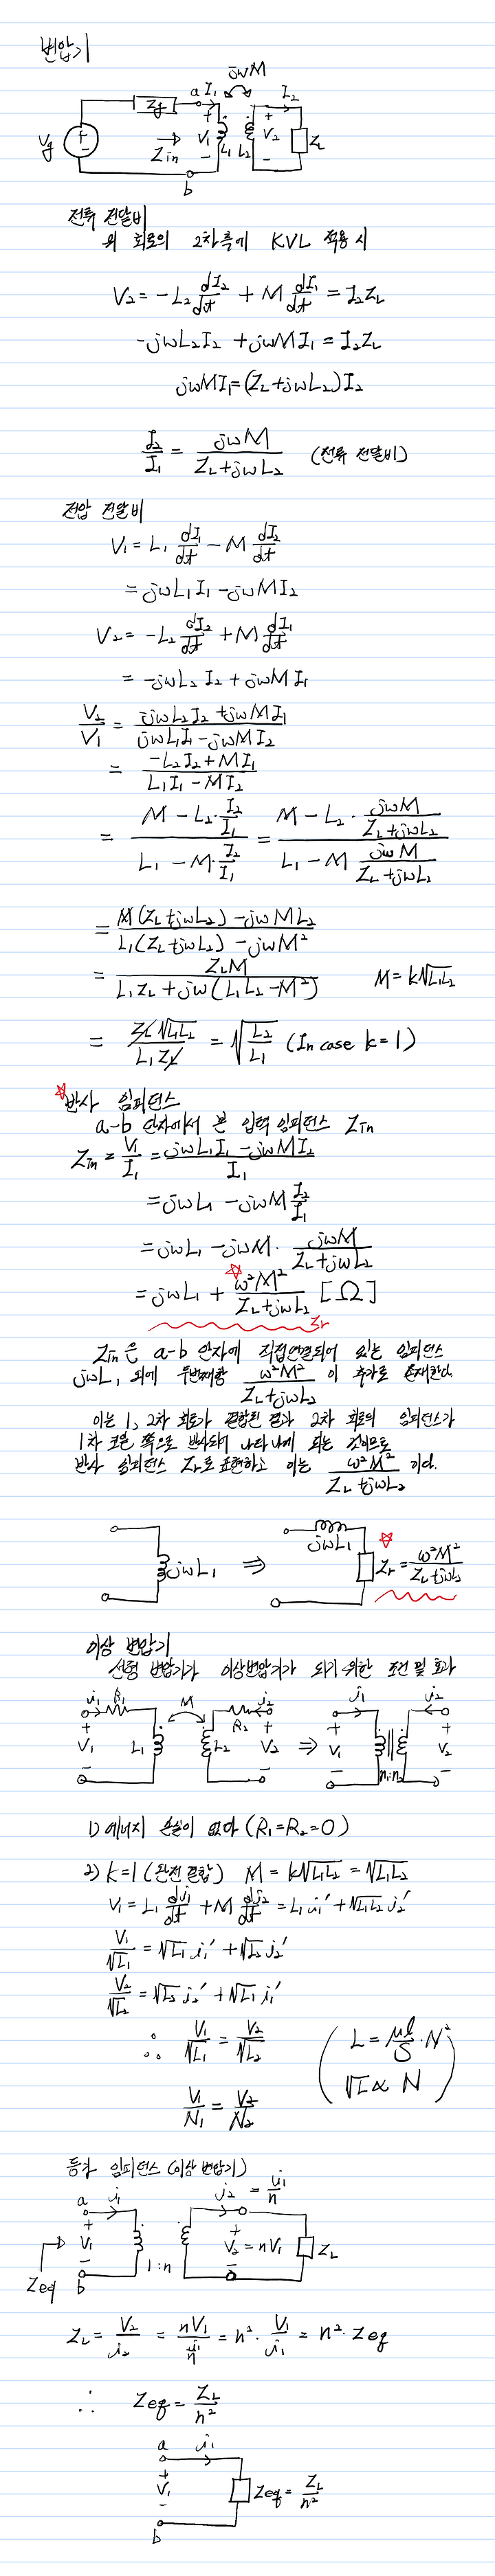 변압기
jωM
Zg a I₁ I₂
Vg Zin V₁ L₁ L₂ V₂ ZL
b
전류 전달비
위 회로의 2차측에 KVL 적용 시
V₂ = -L₂ dI₂/dt + M dI₁/dt = I₂ZL
-jωL₂I₂ + jωMI₁ = I₂ZL
jωMI₁ = (ZL + jωL₂)I₂
I₂/I₁ = jωM/(ZL + jωL₂) (전류 전달비)
전압 전달비
V₁ = L₁ dI₁/dt - M dI₂/dt
= jωL₁I₁ - jωMI₂
V₂ = -L₂ dI₂/dt + M dI₁/dt
= -jωL₂I₂ + jωMI₁
V₂/V₁ = (-jωL₂I₂ + jωMI₁)/(jωL₁I₁ - jωMI₂)
= (-L₂I₂ + MI₁)/(L₁I₁ - MI₂)
= (M - L₂·I₂/I₁)/(L₁ - M·I₂/I₁) = (M - L₂·jωM/(ZL + jωL₂))/(L₁ - M jωM/(ZL + jωL₂))
= (M(ZL + jωL₂) - jωML₂)/(L₁(ZL + jωL₂) - jωM²)
= ZLM/(L₁ZL + jω(L₁L₂ - M²)) M = k√L₁L₂
= ZL√L₁L₂/L₁ZL = √(L₂/L₁) (In case k=1)
☆반사 임피던스
a-b 단자에서 본 입력 임피던스 Zin
Zin = V₁/I₁ = (jωL₁I₁ - jωMI₂)/I₁
= jωL₁ - jωM I₂/I₁
= jωL₁ - jωM · jωM/(ZL + jωL₂)
= jωL₁ + ☆ω²M²/(ZL + jωL₂) [Ω]
Zr
Zin은 a-b 단자에 직접연결되어 있는 임피던스
jωL₁ 외에 두번째항 ω²M²/(ZL + jωL₂) 이 추가로 존재한다.
이는 1, 2차 회로가 결합된 결과 2차 회로의 임피던스가
1차 코일 쪽으로 반사되어 나타나게 되는 것이므로
반사 임피던스 Zr로 표현하고 이는 ω²M²/(ZL + jωL₂) 이다.
jωL₁ ⇒ jωL₁ ☆ Zr = ω²M²/(ZL + jωL₂)
이상 변압기
선형 변압기가 이상변압기가 되기 위한 조건 및 효과
i₁ R₁ M i₂ i₁ i₂
+ R₂ + + +
V₁ L₁ L₂ V₂ ⇒ V₁ V₂
- - - n₁:n₂ -
1) 에너지 손실이 없다 (R₁=R₂=0)
2) k=1 (완전 결합) M = k√L₁L₂ = √L₁L₂
V₁ = L₁ di₁/dt + M di₂/dt = L₁i₁' + √L₁L₂ i₂'
V₁/√L₁ = √L₁ i₁' + √L₂ i₂'
V₂/√L₂ = √L₂ i₂' + √L₁ i₁'
∴ V₁/√L₁ = V₂/√L₂ (L = μl/S · N²
V₁/N₁ = V₂/N₂ √L ∝ N)
등가 임피던스 (이상 변압기)
a i₁ i₂ = i₁/n
+ +
Zeq V₁ 1:n V₂ = nV₁ ZL
- -
b
ZL = V₂/i₂ = nV₁/(i₁/n) = n² · V₁/i₁ = n² · Zeq
∴ Zeq = ZL/n²
a i₁
+
V₁ Zeq = ZL/n²
-
b